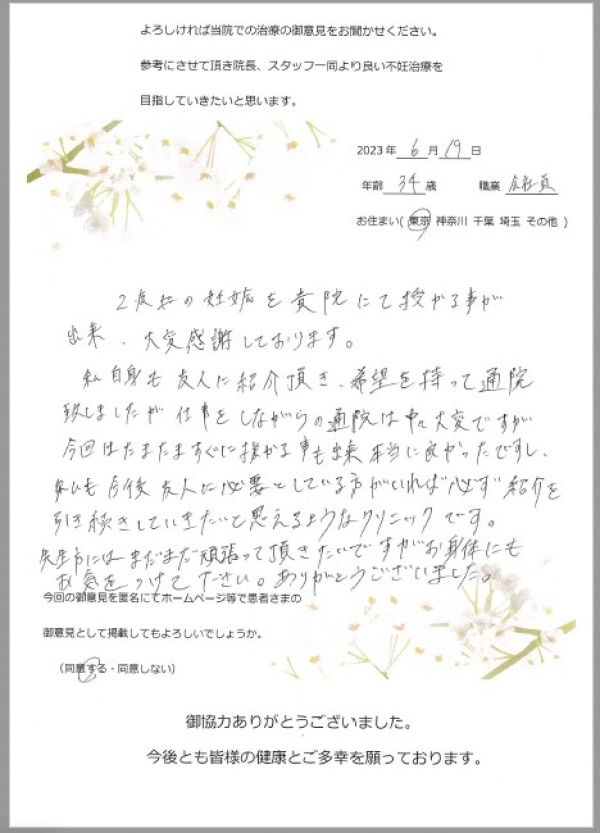 よろしければ当院での治療の御意見をお聞かせください。
参考にさせて頂き院長、スタッフ一同より良い不妊治療を
目指していきたいと思います。
2023年 6 月 19 日
年齢 34 歳 職業 会社員
お住まい( 東京 神奈川 千葉 埼玉 その他 )
2度共の妊娠を貴院にて授かる事が
出来、大変感謝しております。
私自身も友人に紹介頂き、希望を持って通院
致しましたが仕事をしながらの通院は中々大変ですが
今回はたまたますぐに授かる事も出来本当に良かったですし、
私も今後友人に必要としている方がいれば必ず紹介を
引き続きしていきたいと思えるようなクリニックです。
先生方にはまだまだ頑張って頂きたいですがお身体にも
お気をつけて下さい。ありがとうございました。
今回の御意見を匿名にてホームページ等で患者さまの
御意見として掲載してもよろしいでしょうか。
(同意する・同意しない)
御協力ありがとうございました。
今後とも皆様の健康とご多幸を願っております。